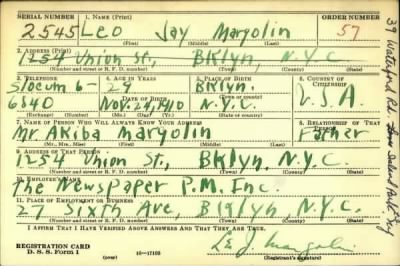 SERIAL NUMBER 1. NAME (Print) ORDER NUMBER
2545 Leo Jay Margolin 57
(First) (Middle) (Last)
2. ADDRESS (Print)
1254 Union St., Bklyn, N.Y.C.
(Number and street or R. F. D. number) (Town) (County) (State)
3. TELEPHONE 4. AGE IN YEARS 5. PLACE OF BIRTH 6. COUNTRY OF CITIZENSHIP
Slocum 6- 29 Bklyn. U.S.A.
DATE OF BIRTH (Town or county)
6840 Nov. 29, 1910 N.Y.C.
(Mo.) (Day) (Yr.) (State or country)
7. NAME OF PERSON WHO WILL ALWAYS KNOW YOUR ADDRESS 8. RELATIONSHIP OF THAT PERSON
Mr. Akiba Margolin Father
(Mr., Mrs., Miss) (First) (Middle) (Last)
9. ADDRESS OF THAT PERSON
1254 Union St., Bklyn, N.Y.C.
(Number and street or R. F. D. number) (Town) (County) (State)
10. EMPLOYER'S NAME
The Newspaper P.M. Inc.
11. PLACE OF EMPLOYMENT OR BUSINESS
27 Sixth Ave, Bklyn, N.Y.C.
(Number and street or R. F. D. number) (Town) (County) (State)
I AFFIRM THAT I HAVE VERIFIED ABOVE ANSWERS AND THAT THEY ARE TRUE.
REGISTRATION CARD
D. S. S. Form 1 16-17105 Leo J. Margolin
(Registrant's signature)
39 Waterford Rd